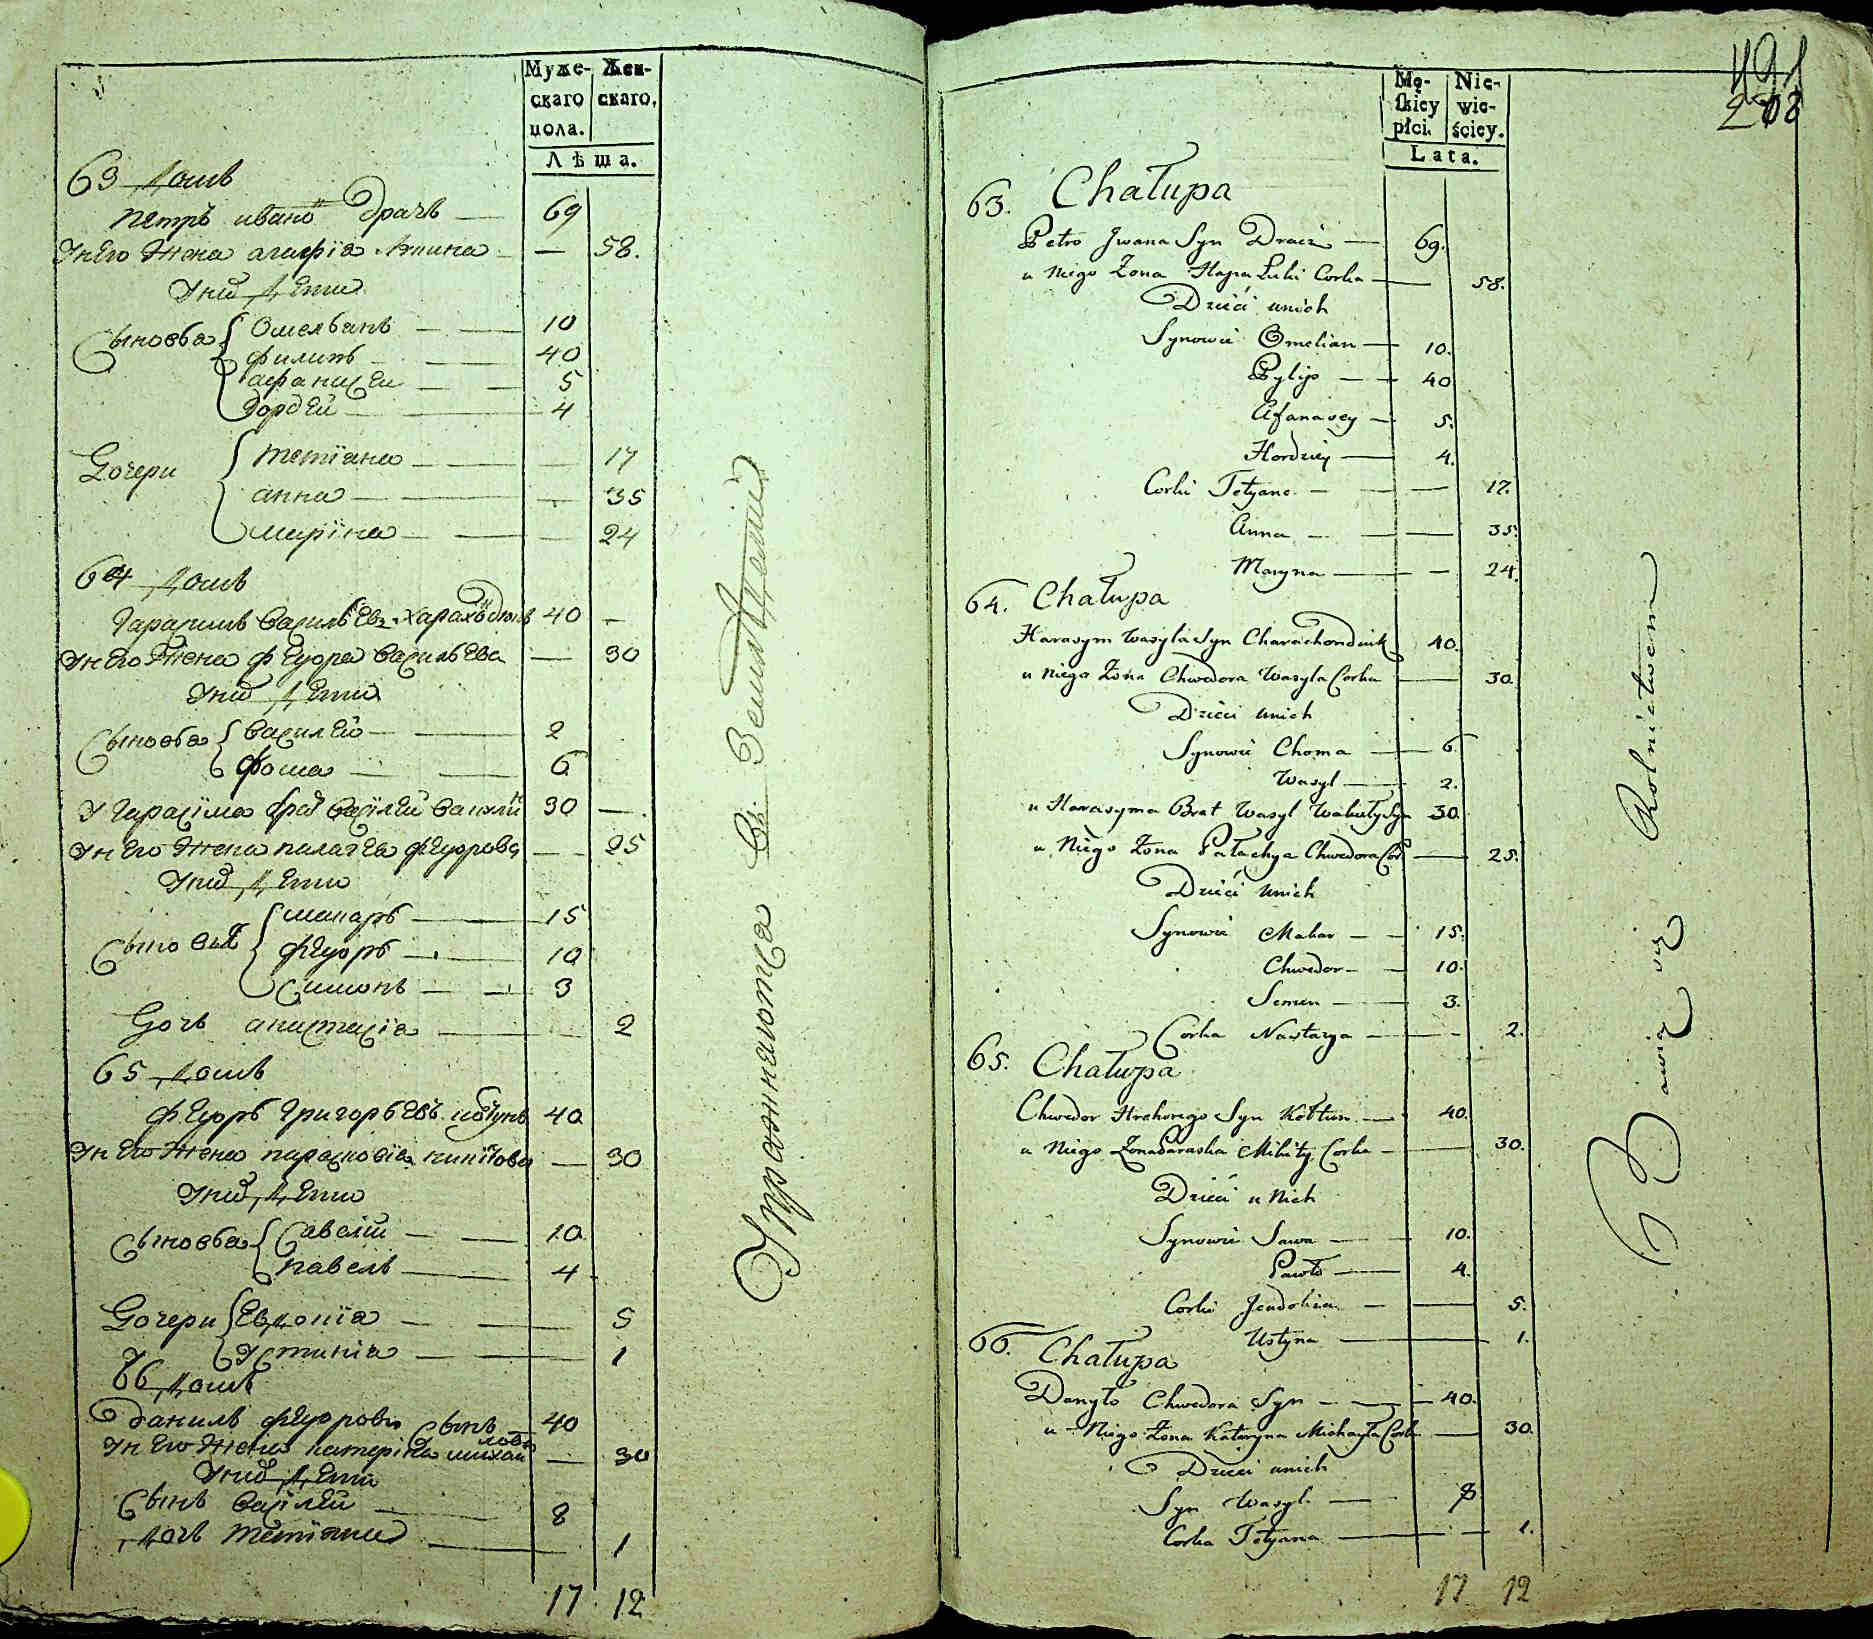 Муже-
скаго
пола.
Жен-
скаго,
Лѣта.
63 домъ
петръ ивано драчъ — 69
У него жена агафiа — 58.
У них дети
Сыновья Омельянъ — 10
филипъ — 40
афанасеи — 5
Гордей — 4
Дочери
тетiана — 17
анна — 35
марiна — 24
64 домъ
Гарасимъ василь евъ 40 —
У него жена феодора васильева — 30
У них дети
Сыновья василей — 2
фома — 6
У Гарасiма брат васiлей 30 —.
У него жена палагеа феодорова — 25
У них дети
Сыновья
макаръ — 15
феодоръ — 10
Симонъ — 3
Дочь анастасiа — 2
65 домъ
феодоръ григорьевъ 40
У него жена парасковiа никитова — 30
У них дети
Сыновья Савелiй — 10
павелъ — 4
Дочери Евдокiа — 5
Устинiа — 1
66 домъ
данилъ феодоровъ сынъ — 40
У него жена катерiна михаи
лова — 30
У них дети
Сынъ васiлей — 8
дочь тетiана — 1
17 12
Упражняются въ Земледелии
Mę-
skiey
płci.
Nie-
wie-
ściey.
Lata.
491
208
63. Chałupa
Petro Jwana Syn Dracz — 69.
u niego Żona Hapa Łuki Corka — 58.
Dzieci unich
Synowie Omelian — 10.
Pylip — 40
Afanasey — 5.
Hordziej — 4.
Corki Tetyana — 17.
Anna — 35.
Maryna — 24.
64. Chałupa
Harasym Wasyla Syn Charachondiuk 40.
u niego Żona Chwedora Wasyla Corka — 30.
Dzieci unich
Synowie Choma — 6.
Wasyl — 2.
u Harasyma Brat Wasyl 30.
u Niego Żona Pałachya Chwedora Cor — 25.
Dzieci unich
Synowie Makar — 15.
Chwedor — 10.
Semen — 3.
Corka Nastazya — 2.
65. Chałupa
Chwedor Hrehorego Syn Kołtun — 40.
u Niego Żona Paraska Mikity Corka — 30.
Dzieci u Nich
Synowie Sawa — 10.
Pawło — 4.
Corki Jewdokia — 5.
Ustyna — 1.
66. Chałupa
Danyło Chwedora Syn — 40.
u Niego Żona Kateryna Michayła Corka — 30.
Dzieci unich
Syn Wasyl — 8
Corka Tetyana — 1.
17 12
Bawią się Rolnictwem